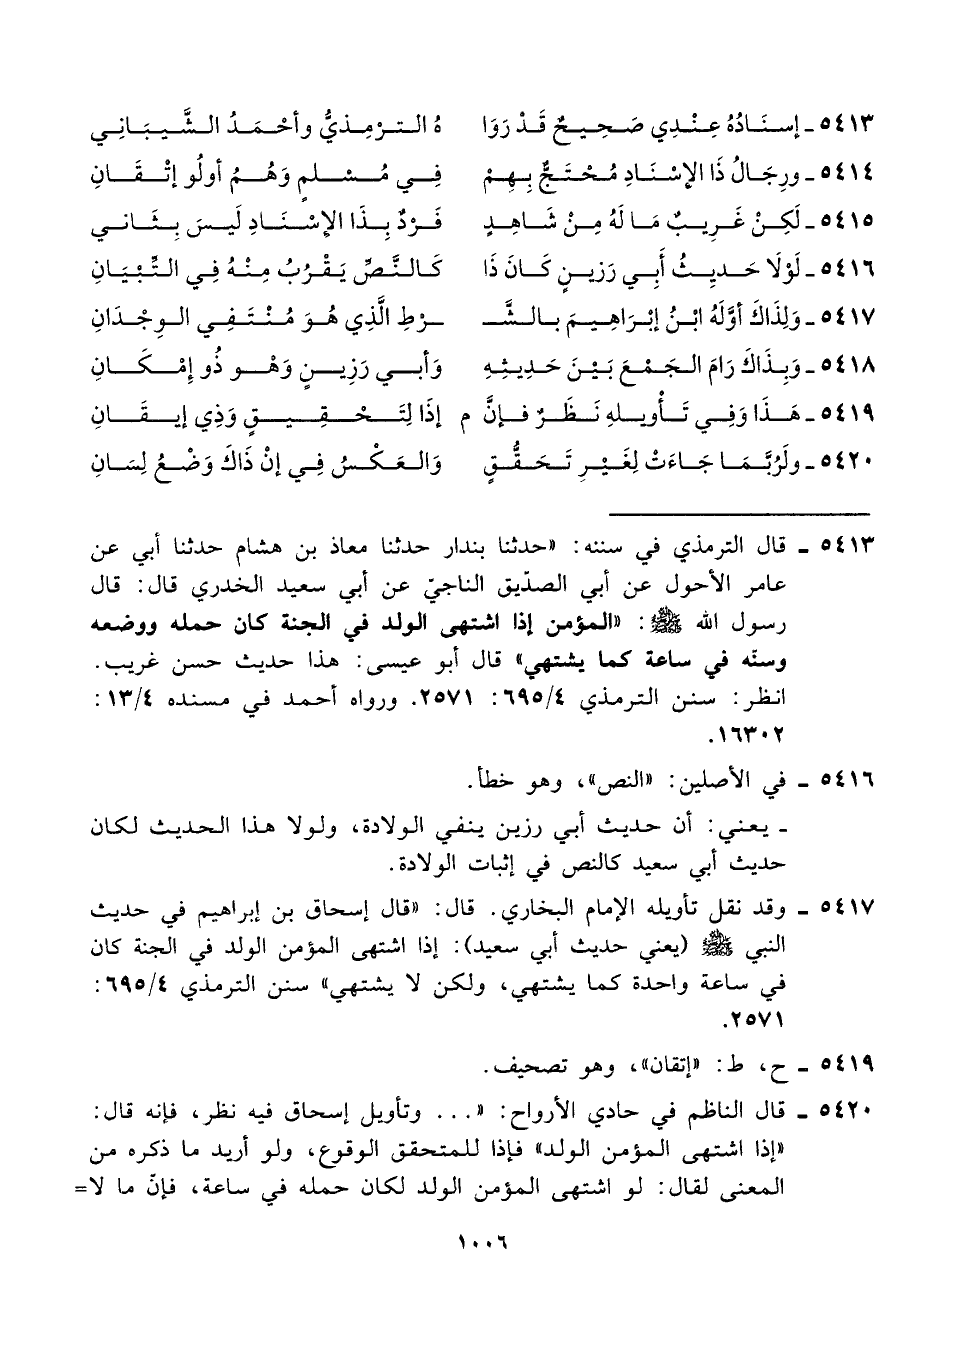 ٥٤١٣ ـ إسنَادُهُ عِنْدِي صَحِيحٌ قَدْ رَوَا هُ التِرْمِذيُّ وأحْمَدُ الشَّيبَانِي
٥٤١٤ ـ ورِجَالُ ذَا الإسْنَادِ مُحْتَجٌّ بِهِمْ فِي مُسْلِمٍ وَهُمُ أولُو إتْقَانِ
٥٤١٥ ـ لَكِنْ غَرِيبٌ مَا لَهُ مِنْ شَاهِدٍ فَرْدٌ بِذَا الإسْنَادِ لَيسَ بِثَانِي
٥٤١٦ ـ لَوْلَا حَدِيثُ أبِي رَزِينٍ كَانَ ذَا كَالنَّصِّ يَقْرُبُ مِنْهُ فِي التِّبْيَانِ
٥٤١٧ ـ وَلِذَاكَ أوَّلَهُ ابْنُ إبْرَاهِيمَ بالشَّـ ـرْطِ الَّذِي هُوَ مُنْتَفِي الوِجْدَانِ
٥٤١٨ ـ وَبِذَاكَ رَامَ الجَمْعَ بَيْنَ حَدِيثِهِ وَأبِي رَزِينٍ وَهْوَ ذُو إمْكَانِ
٥٤١٩ ـ هَذَا وَفِي تَأْوِيلِهِ نَظَرٌ فإنَّ م إذَا لِتَحْقِيقٍ وَذِي إيقَانِ
٥٤٢٠ ـ ولَرُبَّمَا جَاءَتْ لِغَيْرِ تَحَقُّقٍ وَالعَكْسُ فِي إنْ ذَاكَ وَضْعُ لِسَانِ
٥٤١٣ ـ قال الترمذي في سننه: «حدثنا بندار حدثنا معاذ بن هشام حدثنا أبي عن
عامر الأحول عن أبي الصدّيق الناجيّ عن أبي سعيد الخدري قال: قال
رسول الله ﷺ: «المؤمن إذا اشتهى الولد في الجنة كان حمله ووضعه
وسنّه في ساعة كما يشتهي» قال أبو عيسى: هذا حديث حسن غريب.
انظر: سنن الترمذي ٦٩٥/٤: ٢٥٧١. ورواه أحمد في مسنده ١٣/٤:
١٦٣٠٢.
٥٤١٦ ـ في الأصلين: «النص»، وهو خطأ.
ـ يعني: أن حديث أبي رزين ينفي الولادة، ولولا هذا الحديث لكان
حديث أبي سعيد كالنص في إثبات الولادة.
٥٤١٧ ـ وقد نقل تأويله الإمام البخاري. قال: «قال إسحاق بن إبراهيم في حديث
النبي ﷺ (يعني حديث أبي سعيد): إذا اشتهى المؤمن الولد في الجنة كان
في ساعة واحدة كما يشتهي، ولكن لا يشتهي» سنن الترمذي ٦٩٥/٤:
٢٥٧١.
٥٤١٩ ـ ح، ط: «إتقان»، وهو تصحيف.
٥٤٢٠ ـ قال الناظم في حادي الأرواح: «... وتأويل إسحاق فيه نظر، فإنه قال:
«إذا اشتهى المؤمن الولد» فإذا للمتحقق الوقوع، ولو أريد ما ذكره من
المعنى لقال: لو اشتهى المؤمن الولد لكان حمله في ساعة، فإنّ ما لا=
١٠٠٦